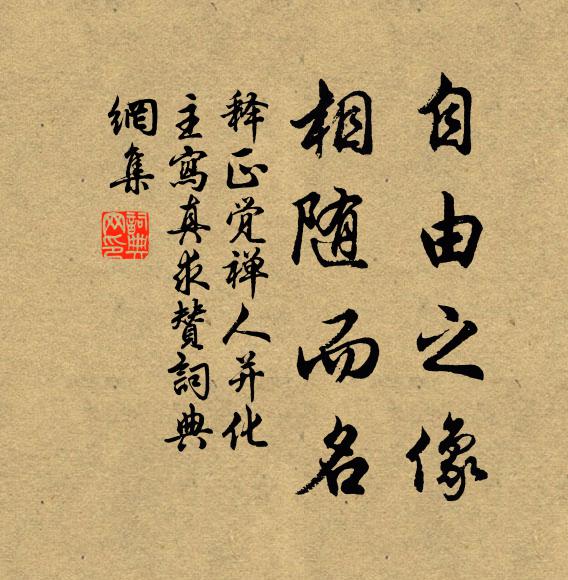 自由之像
相随而名
释正觉禅人并化
主寫真求賛詞典
網集
詞典网印